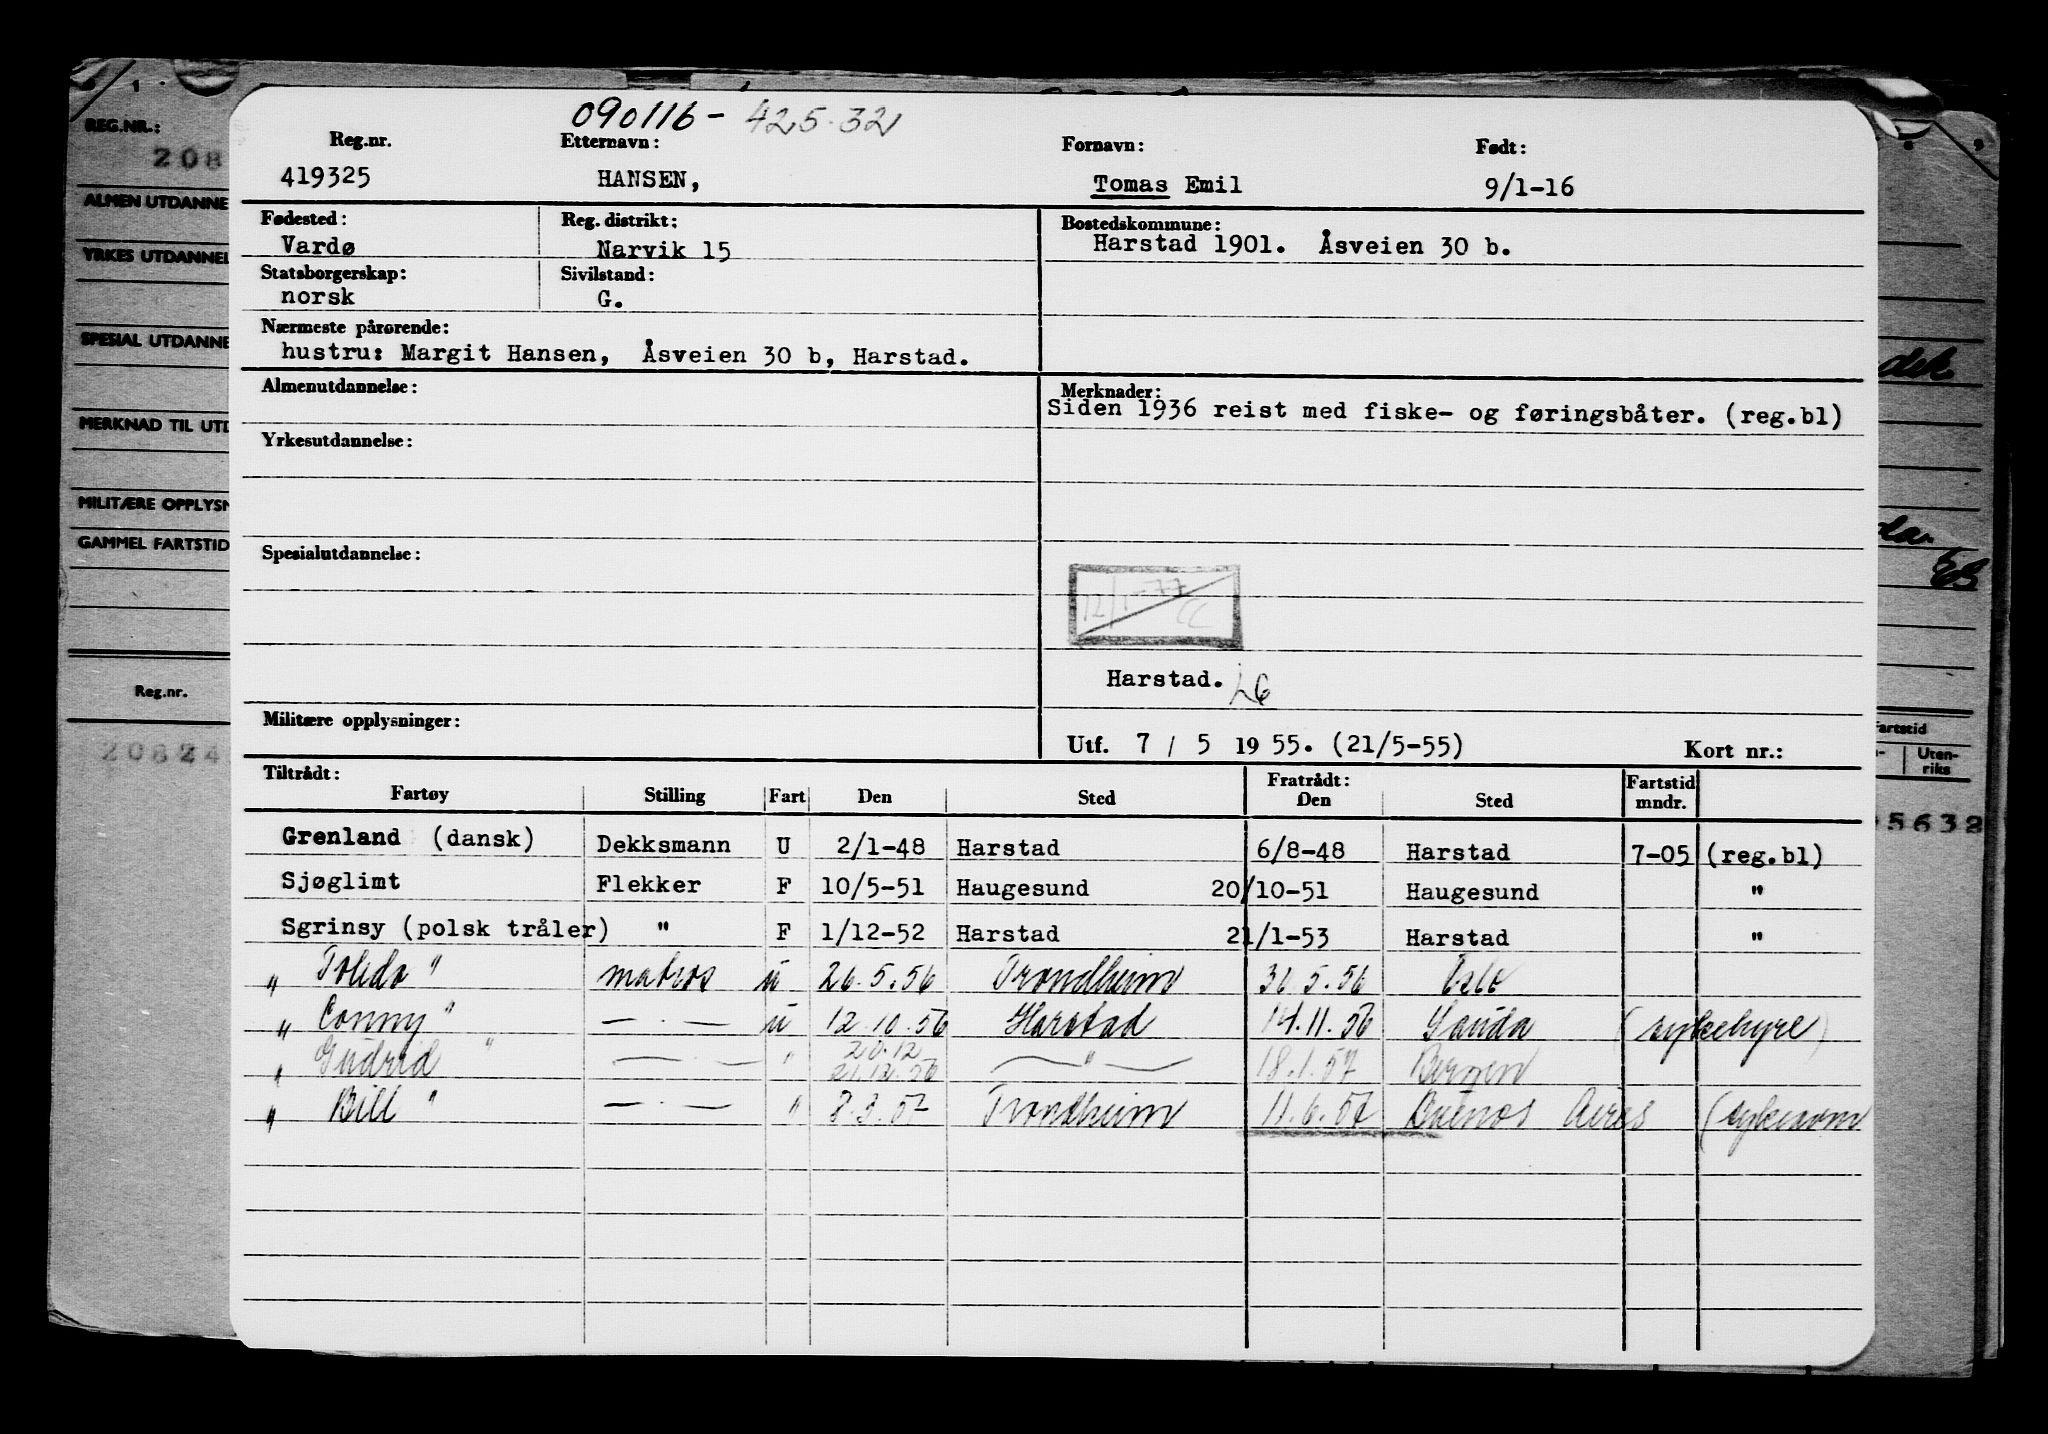 090116- 425.32
Reg.nr. Etternavn: Fornavn: Født:
419325 HANSEN, Tomas Emil 9/1-16
Fødested: Reg. distrikt: Bostedskommune:
Vardø Narvik 15 Harstad 1901. Åsveien 30 b.
Statsborgerskap: Sivilstand:
norsk G.
Nærmeste pårørende:
hustru: Margit Hansen, Åsveien 30 b, Harstad.
Almenutdannelse: Merknader:
Siden 1936 reist med fiske- og føringsbåter. (reg.bl)
Yrkesutdannelse:
Spesialutdannelse:
12/1-77
Harstad.
Militære opplysninger:
Utf. 7 / 5 19 55. (21/5-55) Kort nr.:
Tiltrådt: Fratrådt: Fartstid
Fartøy Stilling Fart Den Sted Den Sted mndr.
Grenland (dansk) Dekksmann U 2/1-48 Harstad 6/8-48 Harstad 7-05 (reg.bl)
Sjøglimt Flekker F 10/5-51 Haugesund 20/10-51 Haugesund "
Sgrinsy (polsk tråler) " F 1/12-52 Harstad 21/1-53 Harstad "
" Toledo " matros u 26.5.56 Trondheim 31.5.56 Oslo
" Conny " — . — u 12.10.56 Harstad 14.11.56 Sauda (sykehyre)
" Gudrid " — . — " 20.12 21.12.56 — " — 18.1.57 Bergen
" Bill " — . — " 8.3.57 Trondheim 11.6.57 Buenos Aires (sykdom
REG.NR.:
208
ALMEN UTDANNE
YRKES UTDANNEL
SPESIAL UTDANNE
MERKNAD TIL UTD
MILITÆRE OPPLYSN
GAMMEL FARTSTID
Reg.nr.
20824
Fartstid
Uten-
riks
5632